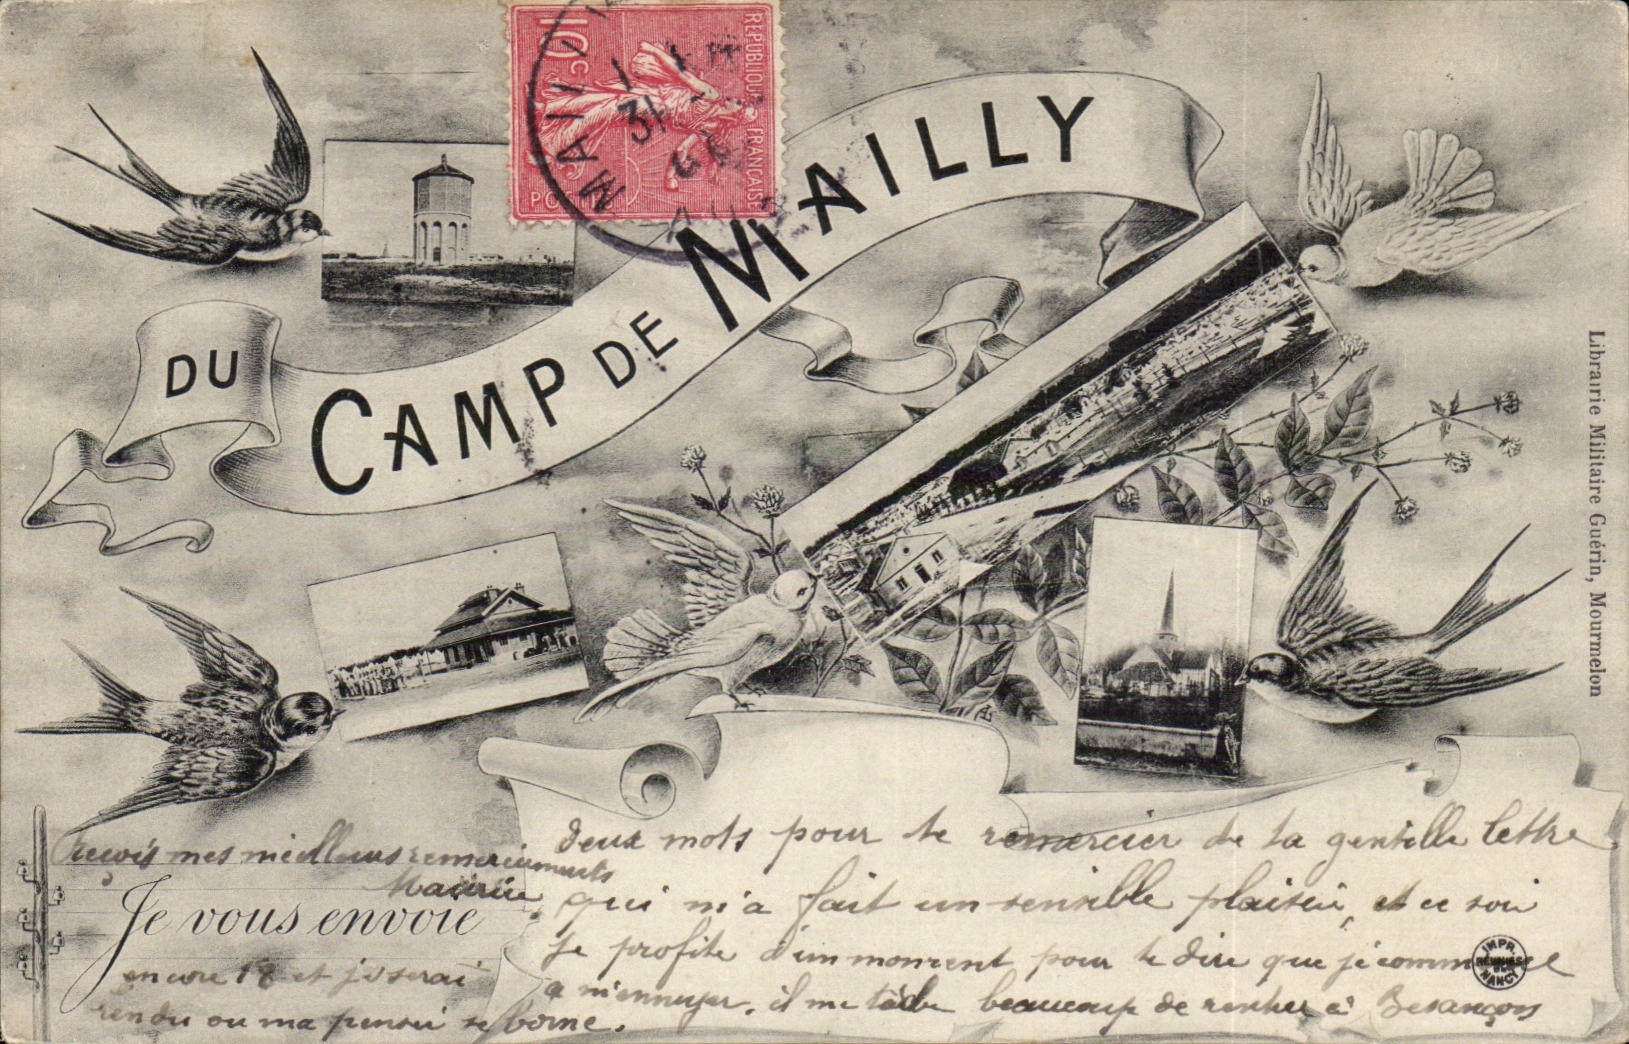 10c
REPUBLIQUE FRANCAISE
MAILLY
31
DU CAMP DE MAILLY
Librairie Militaire Guérin, Mourmelon
Je vous envoie
deux mots pour te remercier de ta gentille lettre
qui m'a fait un sensible plaisir, et ce soir
je profite d'un moment pour te dire que je commence
a m'ennuyer. il me tarde beaucoup de rentrer à Besançon
encore 18 et j'y serai
rendu ou ma pensée se borne.
Reçois mes meilleurs remerciements
Maurice
IMPR. REUNIES DE NANCY